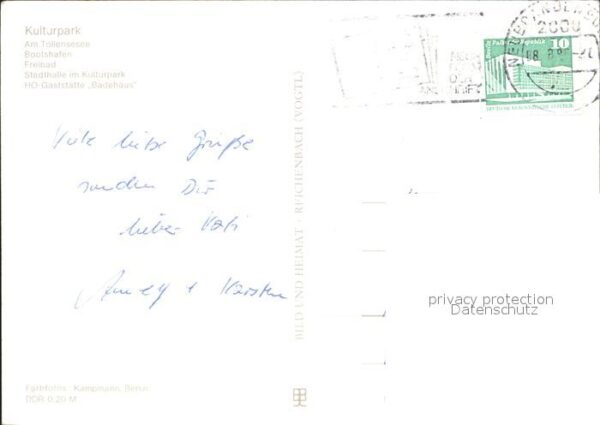 Kulturpark
Am Tollensesee
Bootshafen
Freibad
Stadthalle im Kulturpark
HO-Gaststätte „Badehaus"
Viele liebe Grüße
senden Dir
lieber Vati
+ Karsten
BILD UND HEIMAT · REICHENBACH (VOGTL)
2000
10
privacy protection
Datenschutz
Farbfotos: Kampmann, Berlin
DDR 0,20 M